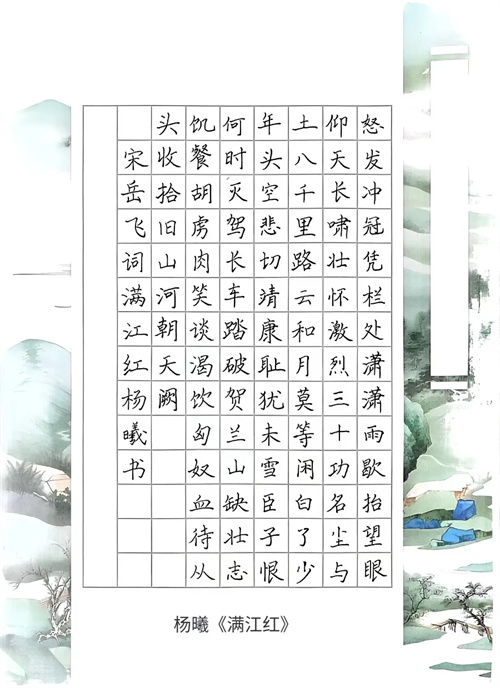 怒发冲冠凭栏处潇潇雨歇抬望眼
仰天长啸壮怀激烈三十功名尘与
土八千里路云和月莫等闲白了少
年头空悲切靖康耻犹未雪臣子恨
何时灭驾长车踏破贺兰山缺壮志
饥餐胡虏肉笑谈渴饮匈奴血待从
头收拾旧山河朝天阙
宋岳飞词满江红杨曦书
杨曦《满江红》